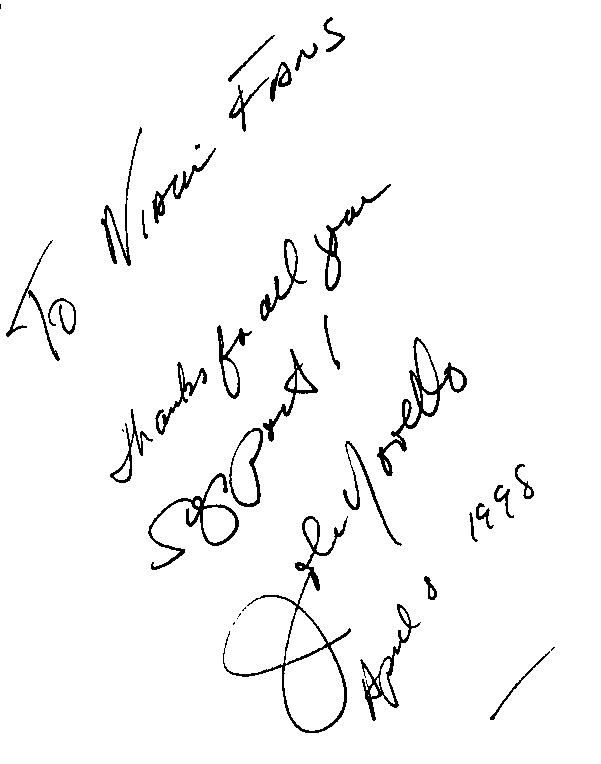 To NIACIN FANS
thanks for all your
support!
John Novello
April 8 1998